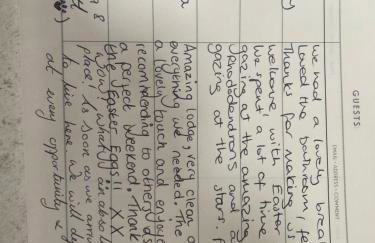 GUESTS
EMAIL - ADDRESS - COMMENT
We had a lovely brea
Loved the bathroom, fe
Thanks for making us
welcome, with Easter
We spent a lot of time
gazing at the amazing
rhododendrons and a
gazing at the stars.
Amazing lodge, very clean a
everything we needed. The
a lovely touch and enjoye
recommending to others as
a perfect weekend. Thank
the Easter Eggs!! XX
Wow what an absolu
place! As soon as we arriv
to live here. We will de
at every opportunity &